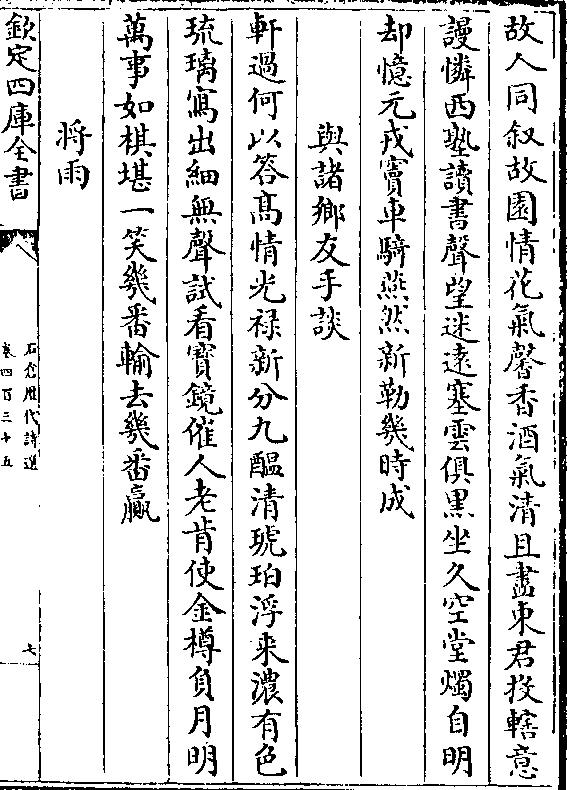 故人同叙故園情花氣馨香酒氣清且盡東君投轄意
謾憐西塾讀書聲望迷遠塞雲俱黑坐久空堂燭自明
却憶元戎竇車騎燕然新勒幾時成
與諸鄉友手談
軒過何以答髙情光禄新分九醖清琥珀浮来濃有色
琉璃寫出細無聲試看寳鏡催人老肯使金樽負月明
萬事如棋堪一笑幾番輸去幾番贏
将雨
欽定四庫全書
石倉歴代詩選
卷四百三十五
七